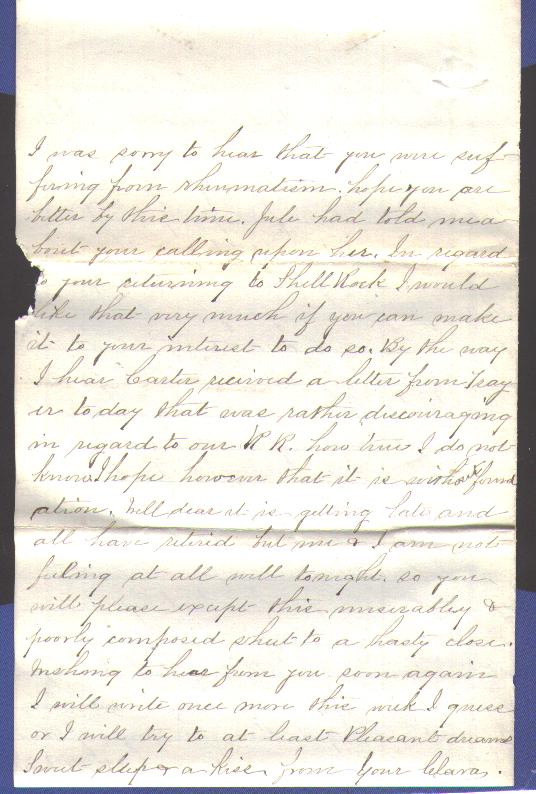 I was sorry to hear that you were suf-
firing from rheumatism. hope you are
better by this time. Jule had told me a-
bout your calling upon her. In regard
to your returning to Shell Rock I would
like that very much if you can make
it to your interest to do so. By the way
I hear Carter received a letter from Tray
er to day that was rather discouraging
in regard to our R R. how true I do not
know. I hope however that it is without found
ation. Well dear it is getting late and
all have retired but me & I am not
feeling at all well tonight. so you
will please except this miserably &
poorly composed sheet to a hasty close.
Wishing to hear from you soon again
I will write once more this week I guess
or I will try to at least Pleasant dreams
Sweet sleep & a kiss from Your Clara.